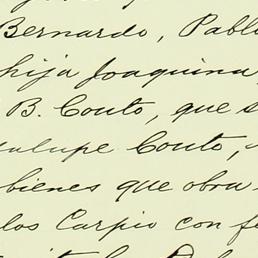 Bernardo, Pablo
hija Joaquina
B. Couto, que s
alupe Couto,
bienes que obra
los Carpio con f